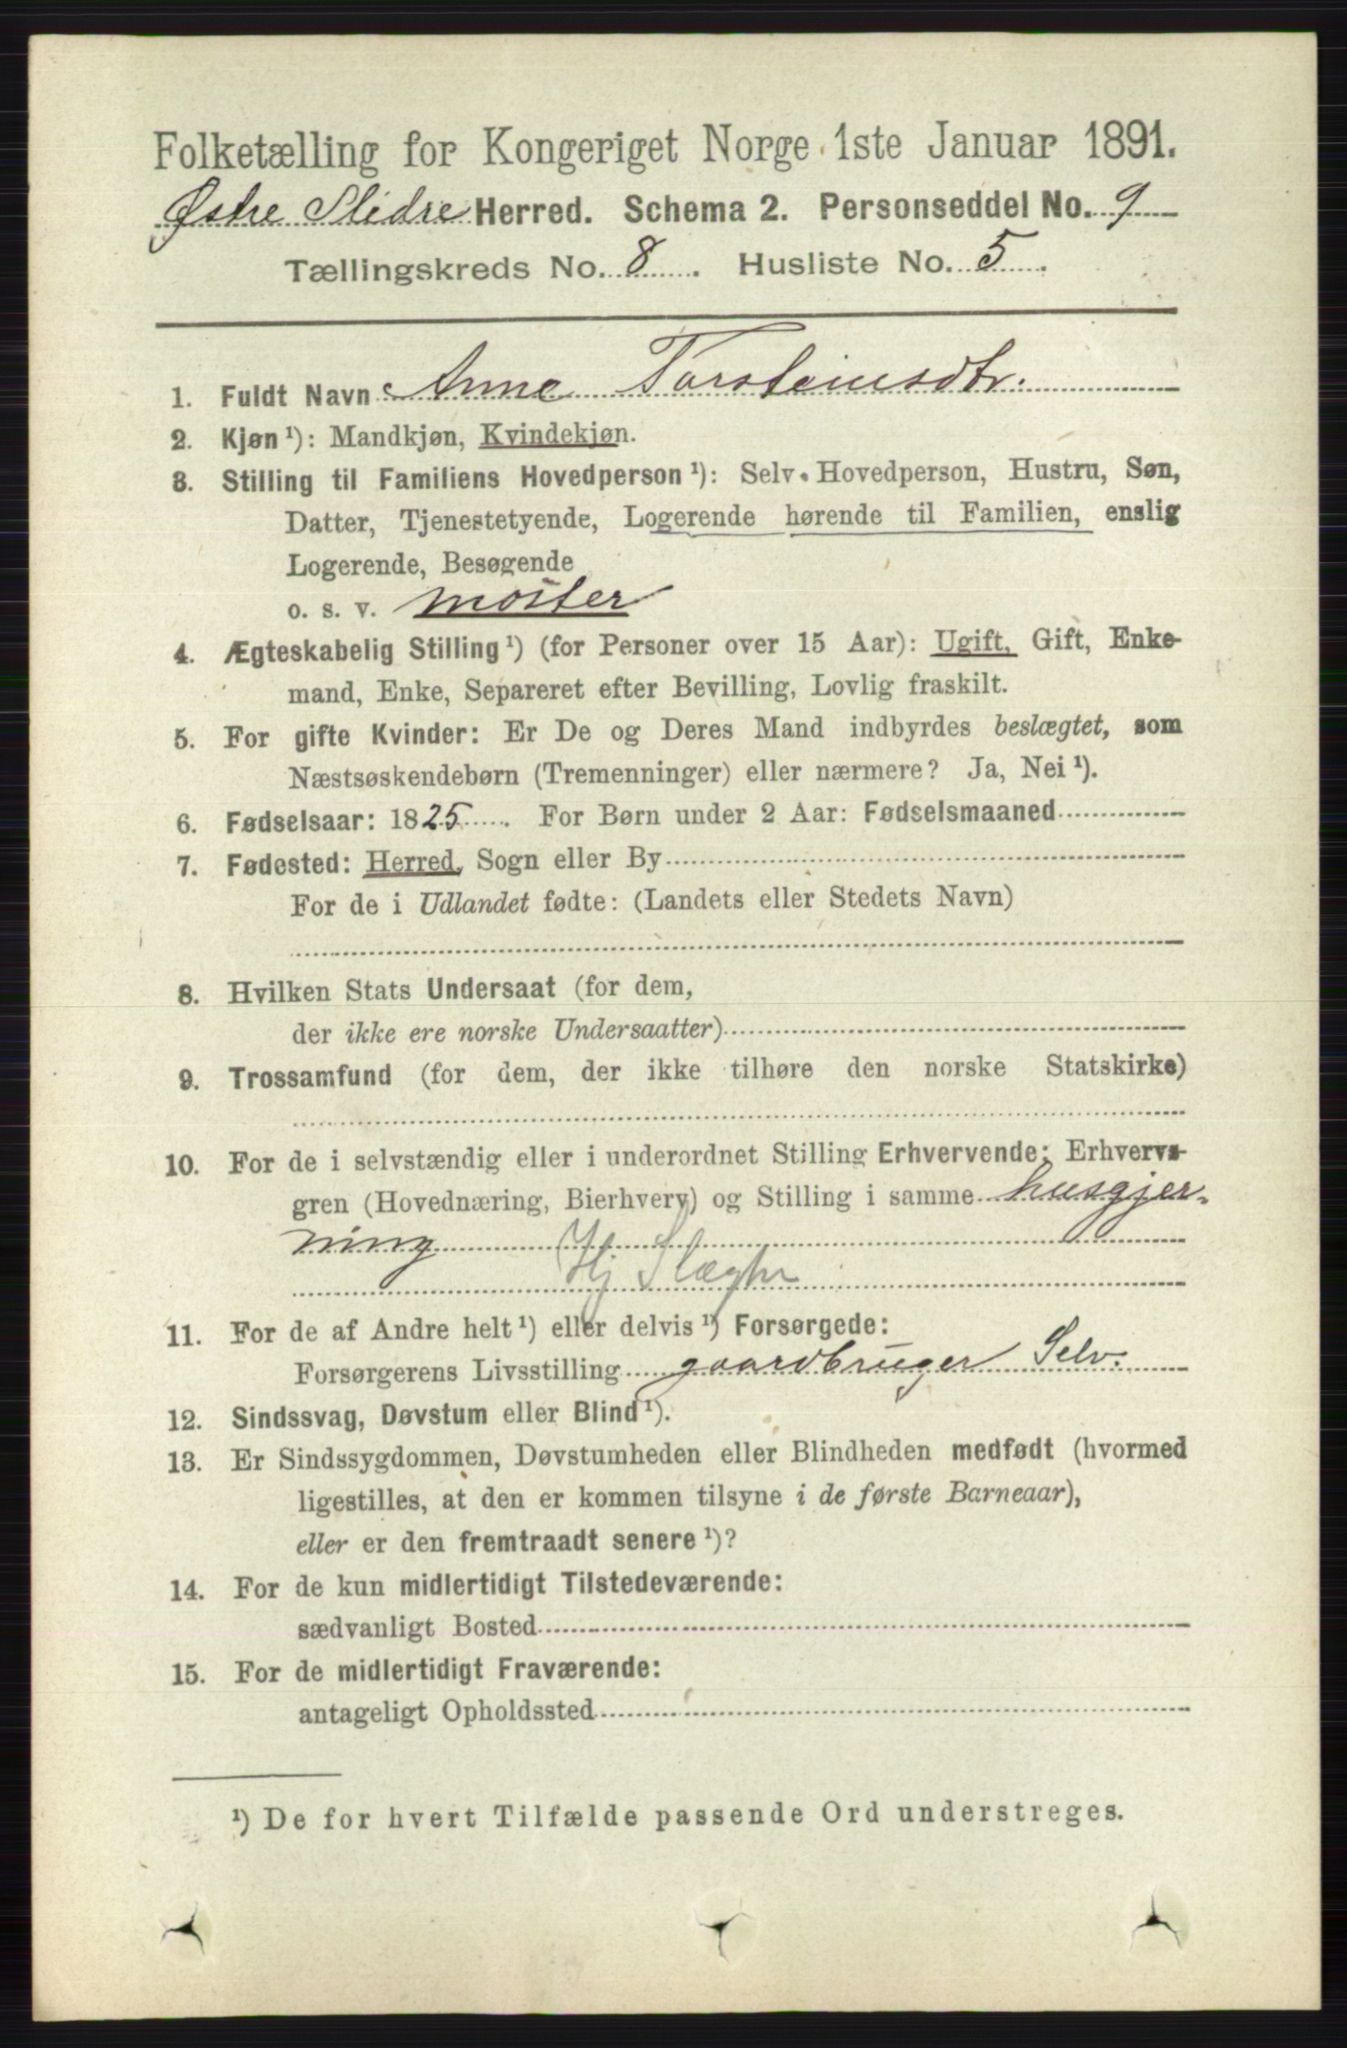 Folketælling for Kongeriget Norge 1ste Januar 1891.
Østre Slidre Herred. Schema 2. Personseddel No. 9
Tællingskreds No. 8. Husliste No. 5.
1. Fuldt Navn Anne Torsteinsdtr.
2. Kjøn ¹): Mandkjøn, Kvindekjøn.
3. Stilling til Familiens Hovedperson ¹): Selv Hovedperson, Hustru, Søn,
Datter, Tjenestetyende, Logerende hørende til Familien, enslig
Logerende, Besøgende
o. s. v. moster
4. Ægteskabelig Stilling ¹) (for Personer over 15 Aar): Ugift, Gift, Enke-
mand, Enke, Separeret efter Bevilling, Lovlig fraskilt.
5. For gifte Kvinder: Er De og Deres Mand indbyrdes beslægtet, som
Næstsøskendebørn (Tremenninger) eller nærmere? Ja, Nei ¹).
6. Fødselsaar: 1825. For Børn under 2 Aar: Fødselsmaaned
7. Fødested: Herred, Sogn eller By
For de i Udlandet fødte: (Landets eller Stedets Navn)
8. Hvilken Stats Undersaat (for dem,
der ikke ere norske Undersaatter)
9. Trossamfund (for dem, der ikke tilhøre den norske Statskirke)
10. For de i selvstændig eller i underordnet Stilling Erhvervende: Erhvervs-
gren (Hovednæring, Bierhverv) og Stilling i samme husgjer-
ning
Hj Slægtn
11. For de af Andre helt ¹) eller delvis ¹) Forsørgede:
Forsørgerens Livsstilling gaardbruger Selv.
12. Sindssvag, Døvstum eller Blind ¹).
13. Er Sindssygdommen, Døvstumheden eller Blindheden medfødt (hvormed
ligestilles, at den er kommen tilsyne i de første Barneaar),
eller er den fremtraadt senere ¹)?
14. For de kun midlertidigt Tilstedeværende:
sædvanligt Bosted
15. For de midlertidigt Fraværende:
antageligt Opholdssted
¹) De for hvert Tilfælde passende Ord understreges.